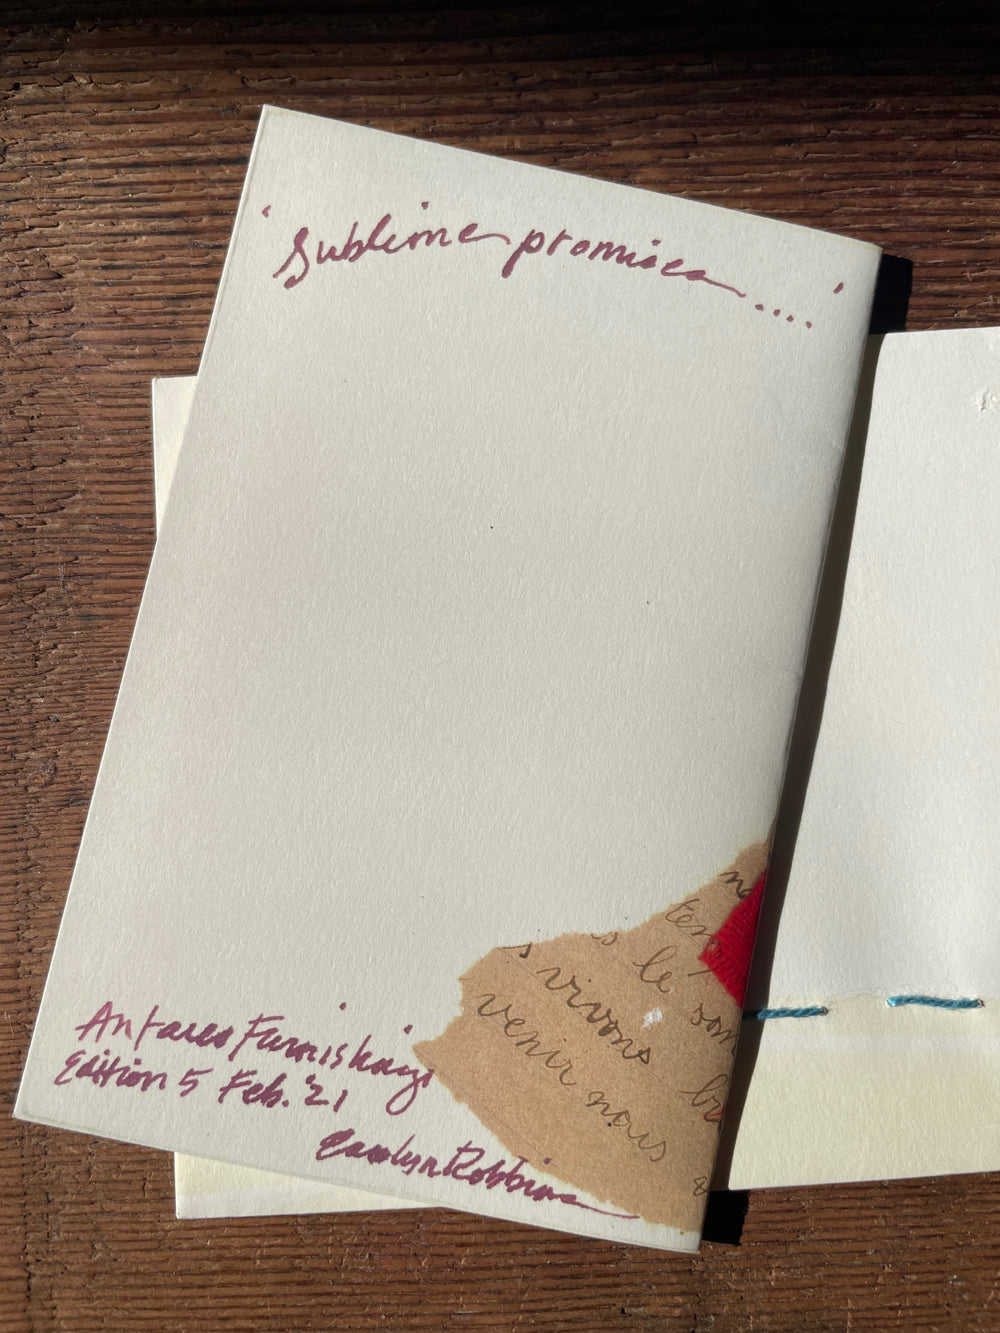 'Sublime promises....'
Antares Furnishings
Edition 5 Feb. '21
Carolyn Robbins
le som
s vivons
venir nous